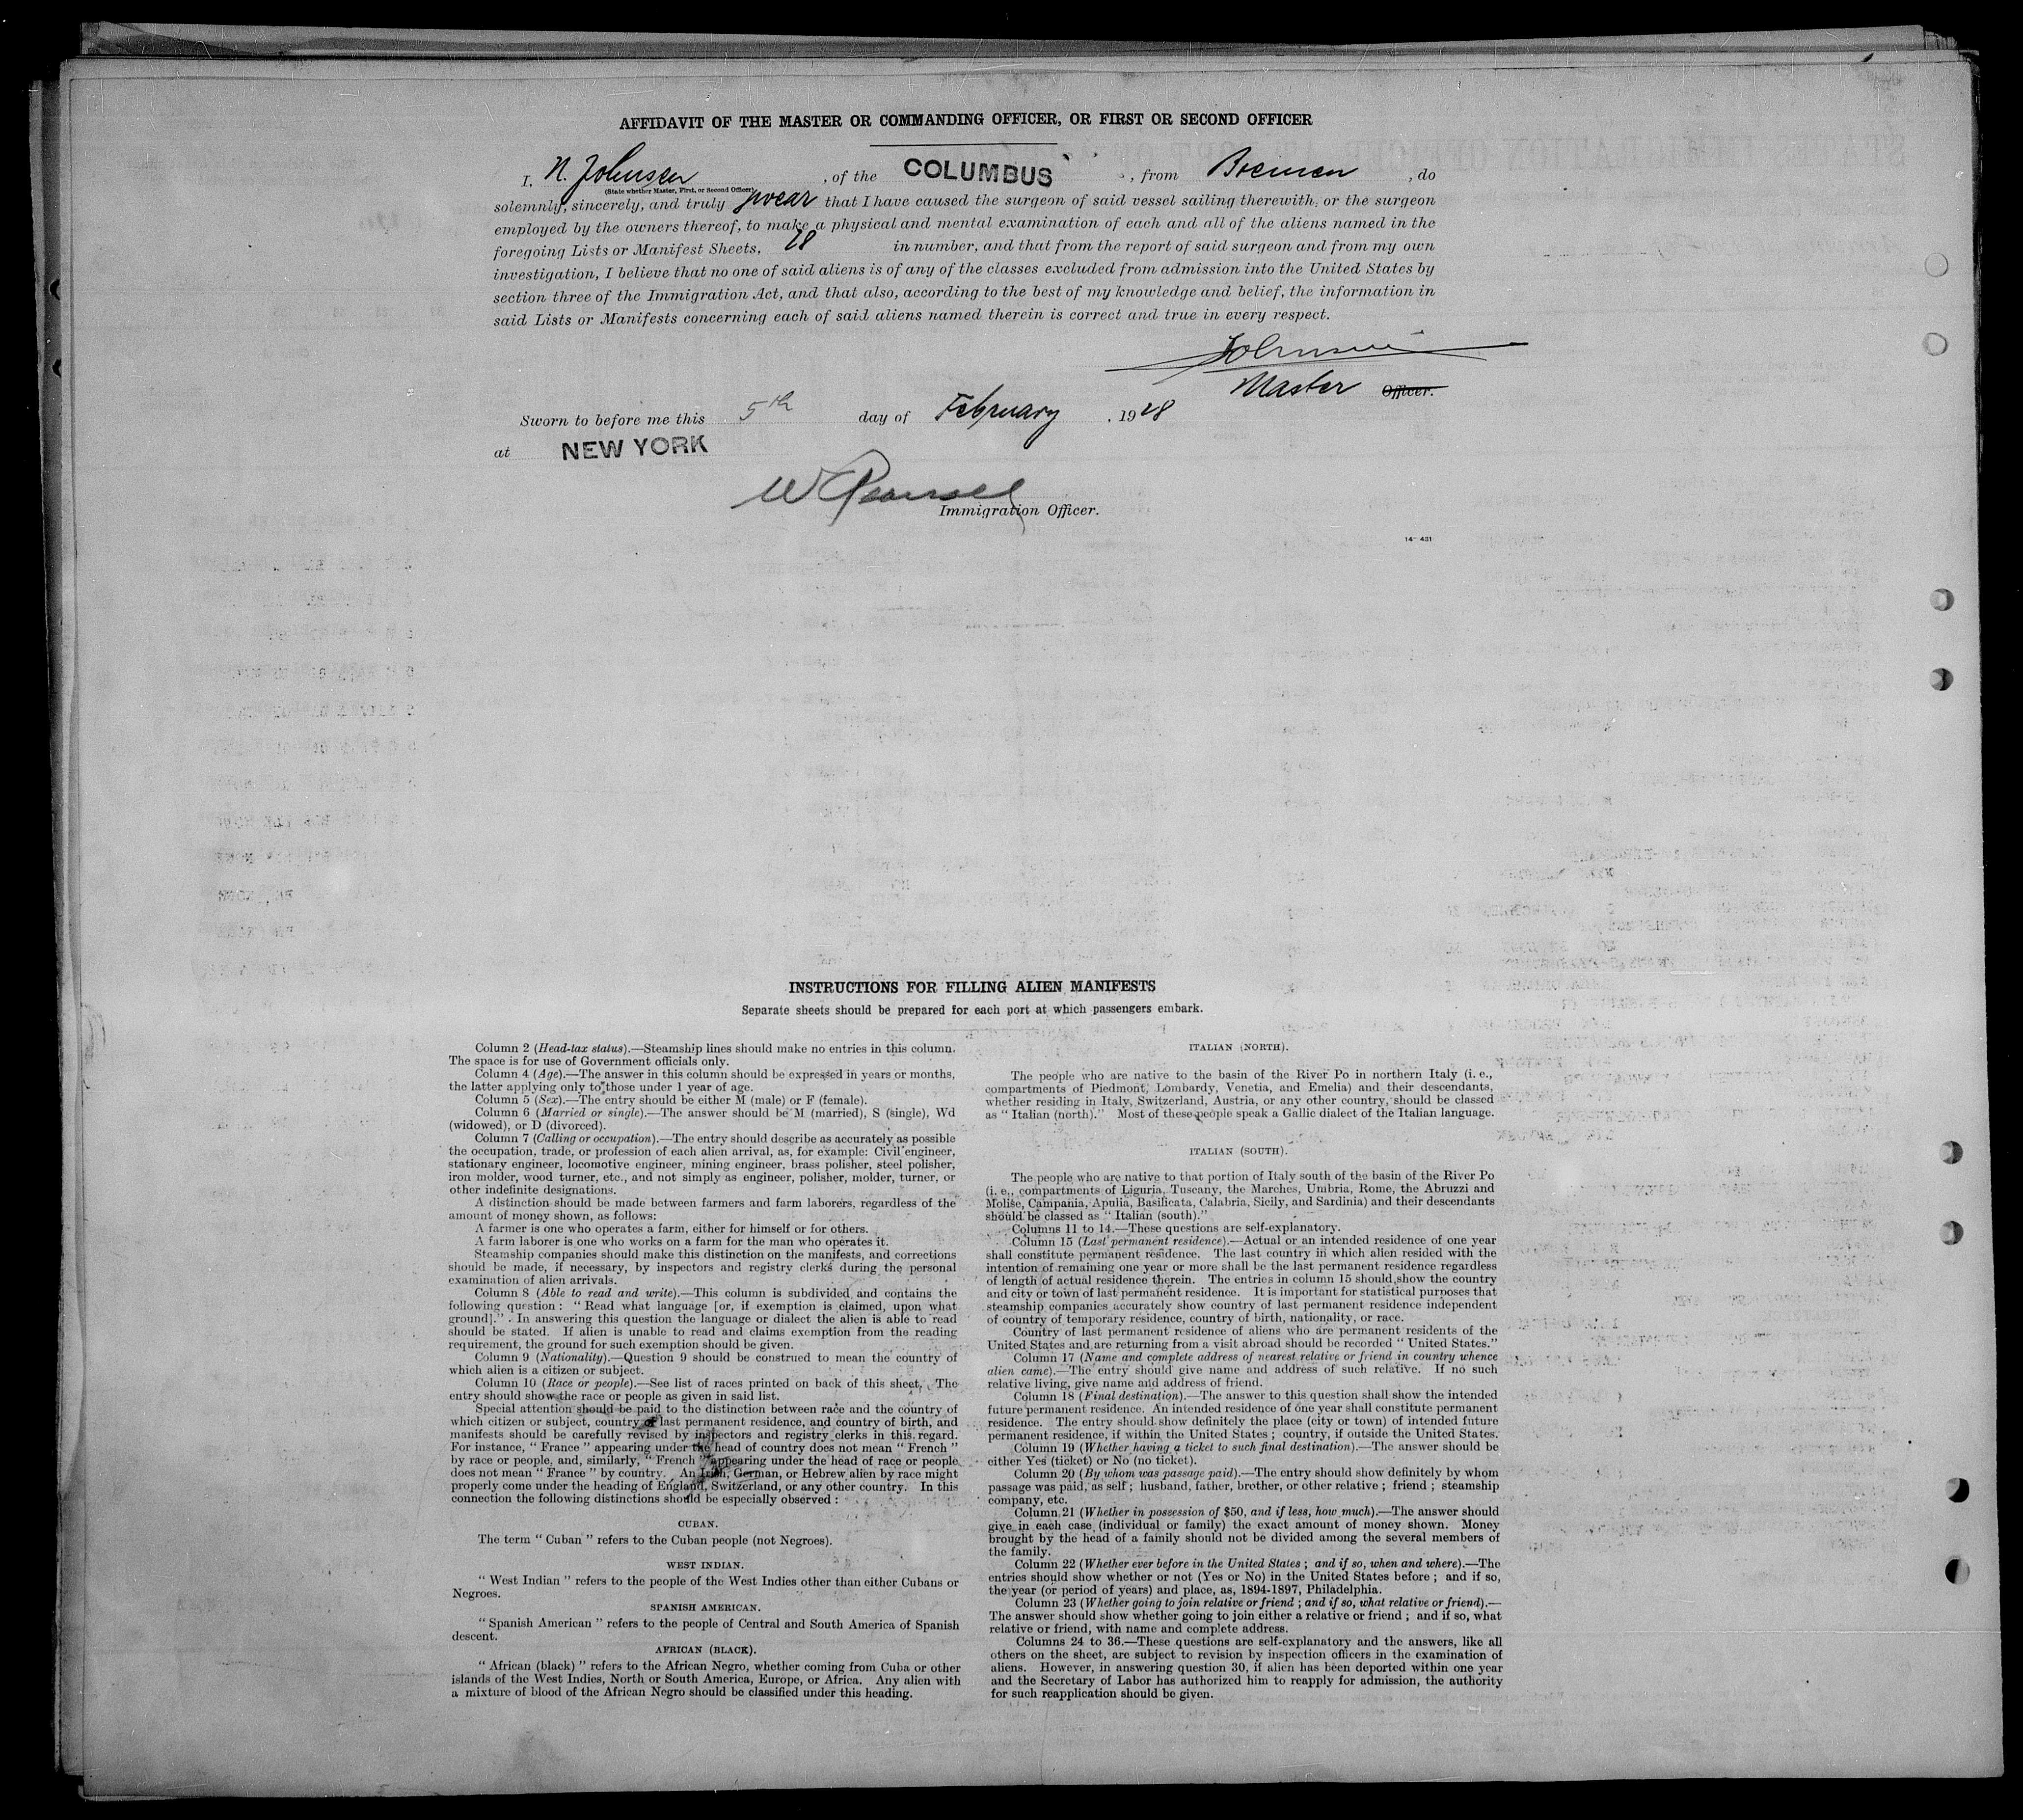 AFFIDAVIT OF THE MASTER OR COMMANDING OFFICER, OR FIRST OR SECOND OFFICER
I, N. Johnsen, of the COLUMBUS, from Bremen, do
(State whether Master, First, or Second Officer)
solemnly, sincerely, and truly swear that I have caused the surgeon of said vessel sailing therewith, or the surgeon
employed by the owners thereof, to make a physical and mental examination of each and all of the aliens named in the
foregoing Lists or Manifest Sheets, 28 in number, and that from the report of said surgeon and from my own
investigation, I believe that no one of said aliens is of any of the classes excluded from admission into the United States by
section three of the Immigration Act, and that also, according to the best of my knowledge and belief, the information in
said Lists or Manifests concerning each of said aliens named therein is correct and true in every respect.
Johnsen
Master Officer.
Sworn to before me this 5th day of February, 1928
at NEW YORK
W
Immigration Officer.
14—431
INSTRUCTIONS FOR FILLING ALIEN MANIFESTS
Separate sheets should be prepared for each port at which passengers embark.
Column 2 (Head-tax status).—Steamship lines should make no entries in this column.
The space is for use of Government officials only.
Column 4 (Age).—The answer in this column should be expressed in years or months,
the latter applying only to those under 1 year of age.
Column 5 (Sex).—The entry should be either M (male) or F (female).
Column 6 (Married or single).—The answer should be M (married), S (single), Wd
(widowed), or D (divorced).
Column 7 (Calling or occupation).—The entry should describe as accurately as possible
the occupation, trade, or profession of each alien arrival, as, for example: Civil engineer,
stationary engineer, locomotive engineer, mining engineer, brass polisher, steel polisher,
iron molder, wood turner, etc., and not simply as engineer, polisher, molder, turner, or
other indefinite designations.
A distinction should be made between farmers and farm laborers, regardless of the
amount of money shown, as follows:
A farmer is one who operates a farm, either for himself or for others.
A farm laborer is one who works on a farm for the man who operates it.
Steamship companies should make this distinction on the manifests, and corrections
should be made, if necessary, by inspectors and registry clerks during the personal
examination of alien arrivals.
Column 8 (Able to read and write).—This column is subdivided and contains the
following question: “Read what language [or, if exemption is claimed, upon what
ground].” In answering this question the language or dialect the alien is able to read
should be stated. If alien is unable to read and claims exemption from the reading
requirement, the ground for such exemption should be given.
Column 9 (Nationality).—Question 9 should be construed to mean the country of
which alien is a citizen or subject.
Column 10 (Race or people).—See list of races printed on back of this sheet. The
entry should show the race or people as given in said list.
Special attention should be paid to the distinction between race and the country of
which citizen or subject, country of last permanent residence, and country of birth, and
manifests should be carefully revised by inspectors and registry clerks in this regard.
For instance, “France” appearing under the head of country does not mean “French”
by race or people, and, similarly, “French” appearing under the head of race or people
does not mean “France” by country. An Irish, German, or Hebrew alien by race might
properly come under the heading of England, Switzerland, or any other country. In this
connection the following distinctions should be especially observed:
CUBAN.
The term “Cuban” refers to the Cuban people (not Negroes).
WEST INDIAN.
“West Indian” refers to the people of the West Indies other than either Cubans or
Negroes.
SPANISH AMERICAN.
“Spanish American” refers to the people of Central and South America of Spanish
descent.
AFRICAN (BLACK).
“African (black)” refers to the African Negro, whether coming from Cuba or other
islands of the West Indies, North or South America, Europe, or Africa. Any alien with
a mixture of blood of the African Negro should be classified under this heading.
ITALIAN (NORTH).
The people who are native to the basin of the River Po in northern Italy (i. e.,
compartments of Piedmont, Lombardy, Venetia, and Emelia) and their descendants,
whether residing in Italy, Switzerland, Austria, or any other country, should be classed
as “Italian (north).” Most of these people speak a Gallic dialect of the Italian language.
ITALIAN (SOUTH).
The people who are native to that portion of Italy south of the basin of the River Po
(i. e., compartments of Liguria, Tuscany, the Marches, Umbria, Rome, the Abruzzi and
Molise, Campania, Apulia, Basilicata, Calabria, Sicily, and Sardinia) and their descendants
should be classed as “Italian (south).”
Columns 11 to 14.—These questions are self-explanatory.
Column 15 (Last permanent residence).—Actual or an intended residence of one year
shall constitute permanent residence. The last country in which alien resided with the
intention of remaining one year or more shall be the last permanent residence regardless
of length of actual residence therein. The entries in column 15 should show the country
and city or town of last permanent residence. It is important for statistical purposes that
steamship companies accurately show country of last permanent residence independent
of country of temporary residence, country of birth, nationality, or race.
Country of last permanent residence of aliens who are permanent residents of the
United States and are returning from a visit abroad should be recorded “United States.”
Column 17 (Name and complete address of nearest relative or friend in country whence
alien came).—The entry should give name and address of such relative. If no such
relative living, give name and address of friend.
Column 18 (Final destination).—The answer to this question shall show the intended
future permanent residence. An intended residence of one year shall constitute permanent
residence. The entry should show definitely the place (city or town) of intended future
permanent residence, if within the United States; country, if outside the United States.
Column 19 (Whether having a ticket to such final destination).—The answer should be
either Yes (ticket) or No (no ticket).
Column 20 (By whom was passage paid).—The entry should show definitely by whom
passage was paid, as self; husband, father, brother, or other relative; friend; steamship
company, etc.
Column 21 (Whether in possession of $50, and if less, how much).—The answer should
give in each case (individual or family) the exact amount of money shown. Money
brought by the head of a family should not be divided among the several members of
the family.
Column 22 (Whether ever before in the United States; and if so, when and where).—The
entries should show whether or not (Yes or No) in the United States before; and if so,
the year (or period of years) and place, as, 1894-1897, Philadelphia.
Column 23 (Whether going to join relative or friend; and if so, what relative or friend).—
The answer should show whether going to join either a relative or friend; and if so, what
relative or friend, with name and complete address.
Columns 24 to 36.—These questions are self-explanatory and the answers, like all
others on the sheet, are subject to revision by inspection officers in the examination of
aliens. However, in answering question 30, if alien has been deported within one year
and the Secretary of Labor has authorized him to reapply for admission, the authority
for such reapplication should be given.